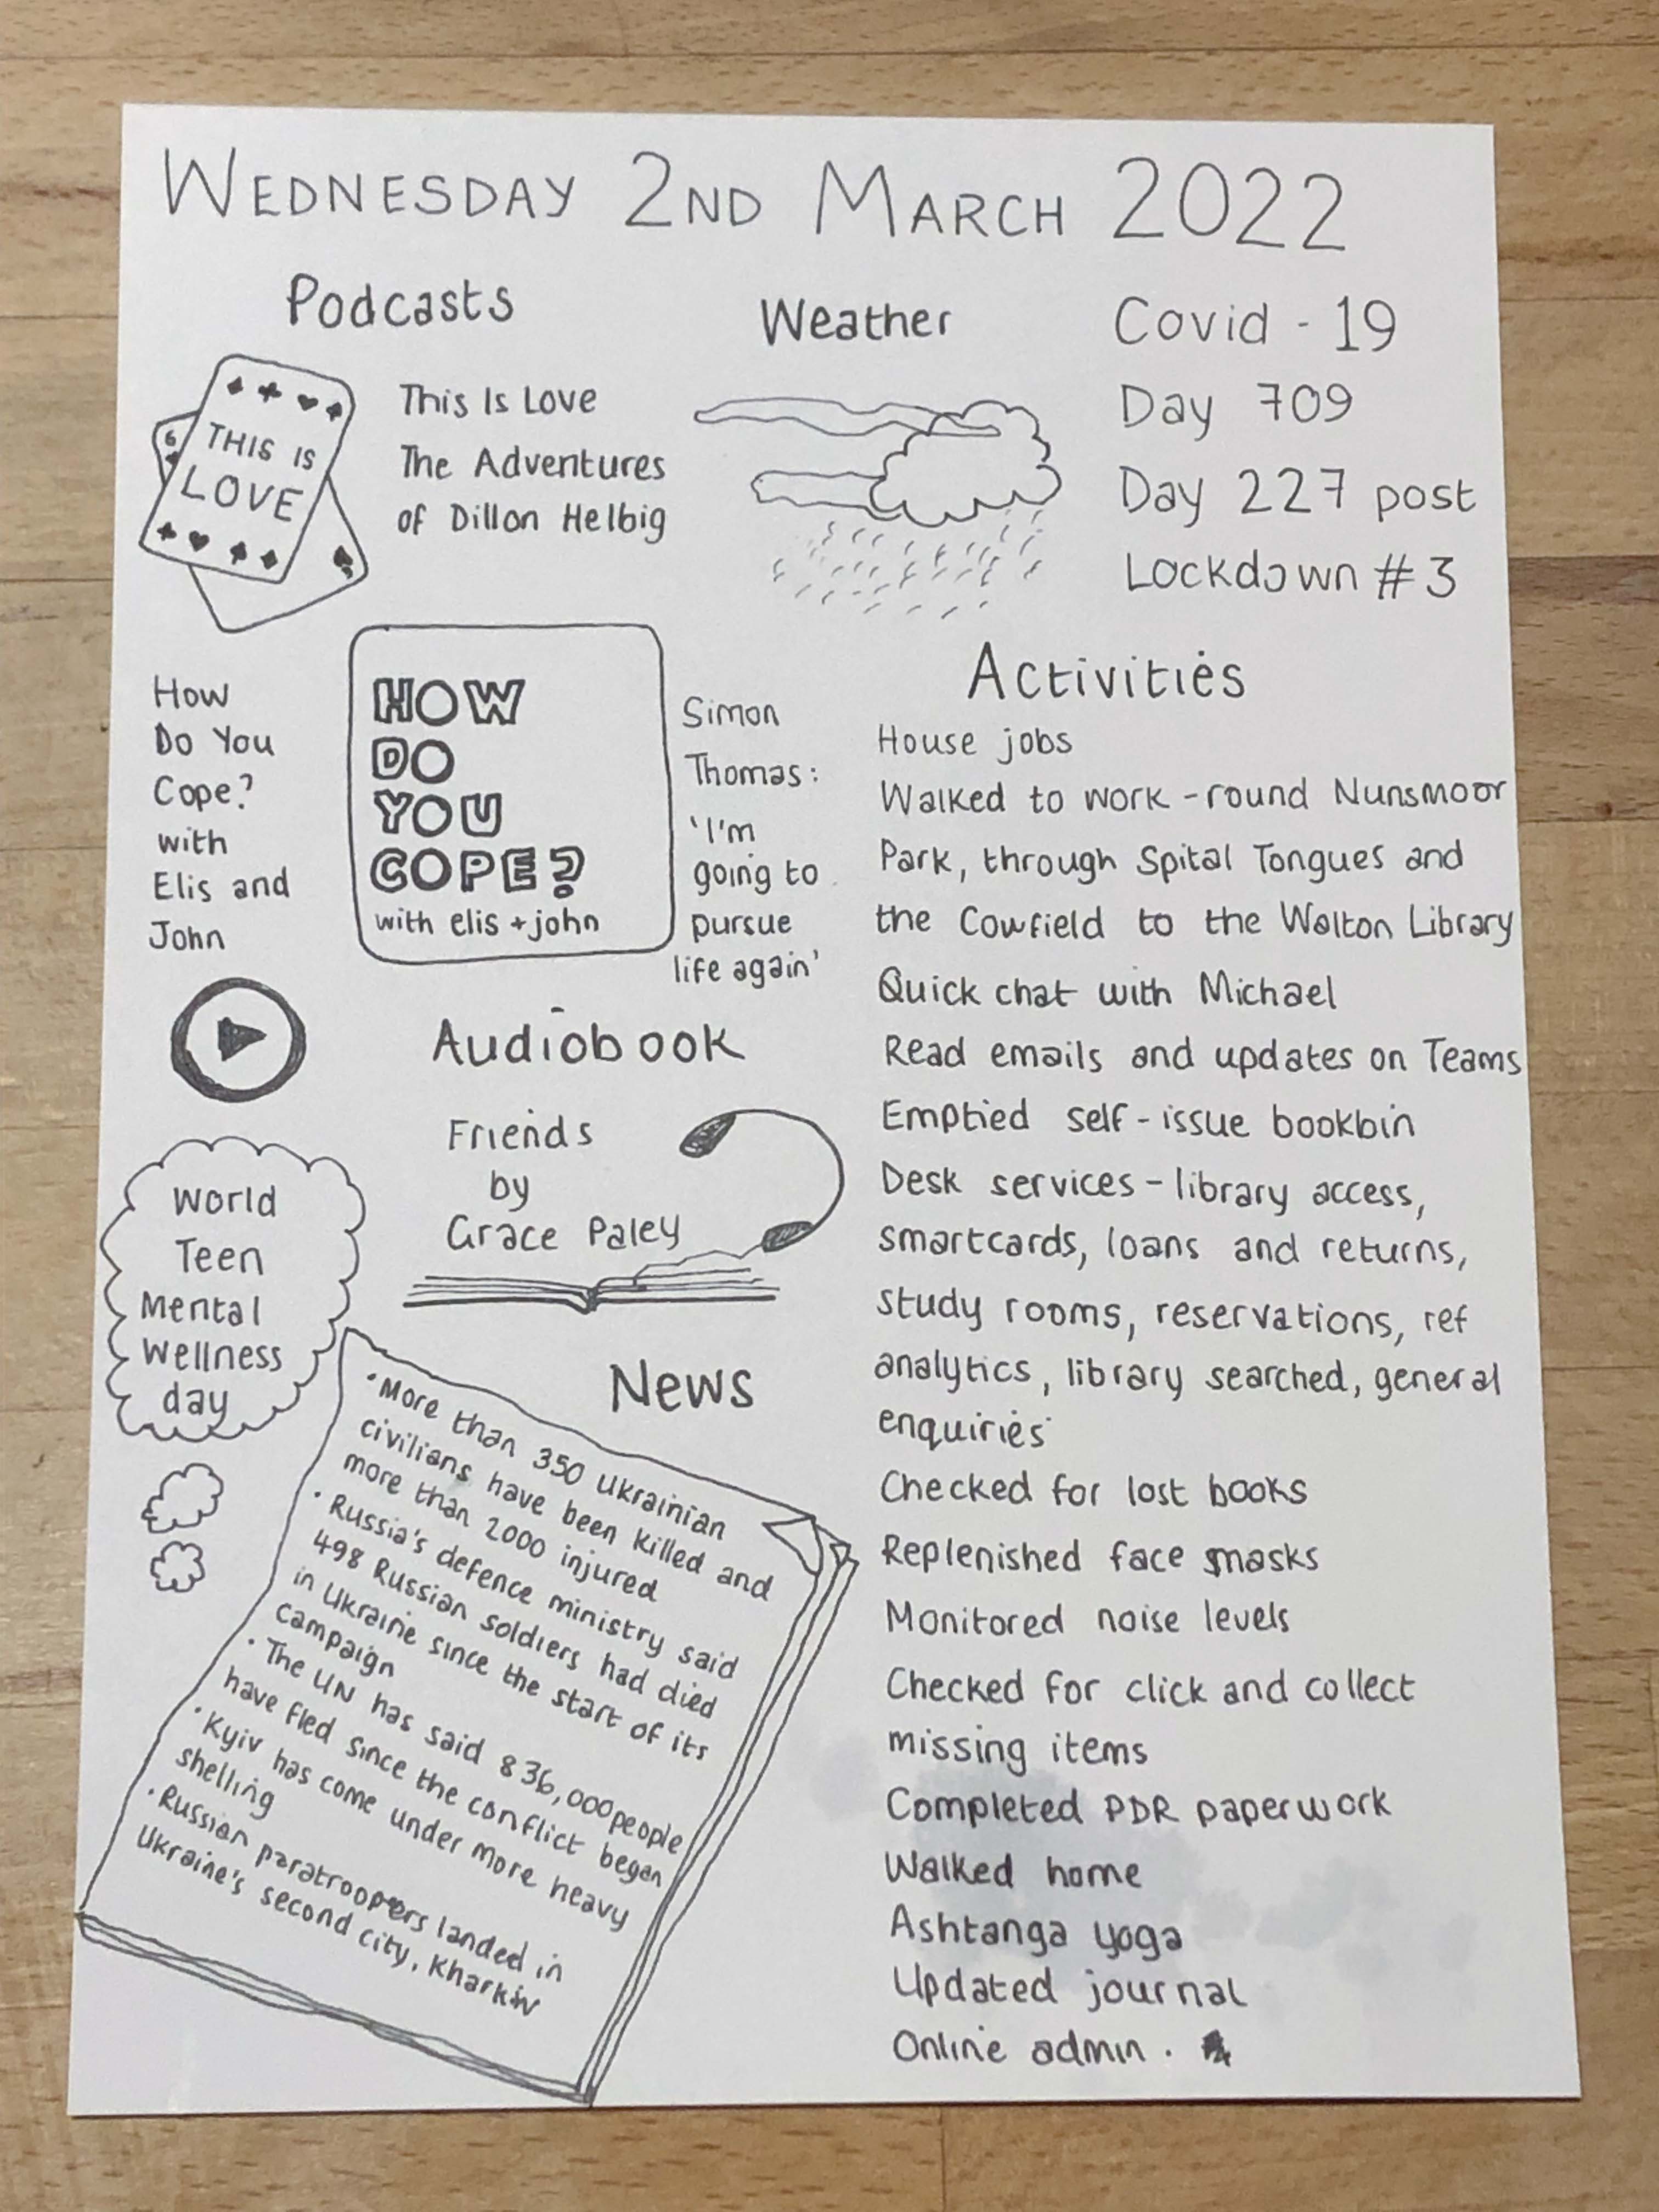 WEDNESDAY 2ND MARCH 2022
Podcasts
THIS IS
LOVE
6
This Is Love
The Adventures
of Dillon Helbig
Weather
Covid - 19
Day 709
Day 227 post
Lockdown #3
How
Do You
Cope?
with
Elis and
John
HOW
DO
YOU
COPE?
with elis + john
Simon
Thomas:
'I'm
going to
pursue
life again'
Audiobook
Friends
by
Grace Paley
World
Teen
Mental
Wellness
day
News
• More than 350 Ukrainian
civilians have been killed and
more than 2000 injured
• Russia's defence ministry said
498 Russian soldiers had died
in Ukraine since the start of its
campaign
• The UN has said 836,000 people
have fled since the conflict began
• Kyiv has come under more heavy
shelling
• Russian paratroopers landed in
Ukraine's second city, Kharkiv
Activities
House jobs
Walked to work - round Nunsmoor
Park, through Spital Tongues and
the Cowfield to the Walton Library
Quick chat with Michael
Read emails and updates on Teams
Emptied self-issue bookbin
Desk services - library access,
smartcards, loans and returns,
study rooms, reservations, ref
analytics, library searched, general
enquiries
Checked for lost books
Replenished face masks
Monitored noise levels
Checked for click and collect
missing items
Completed PDR paperwork
Walked home
Ashtanga yoga
Updated journal
Online admin.